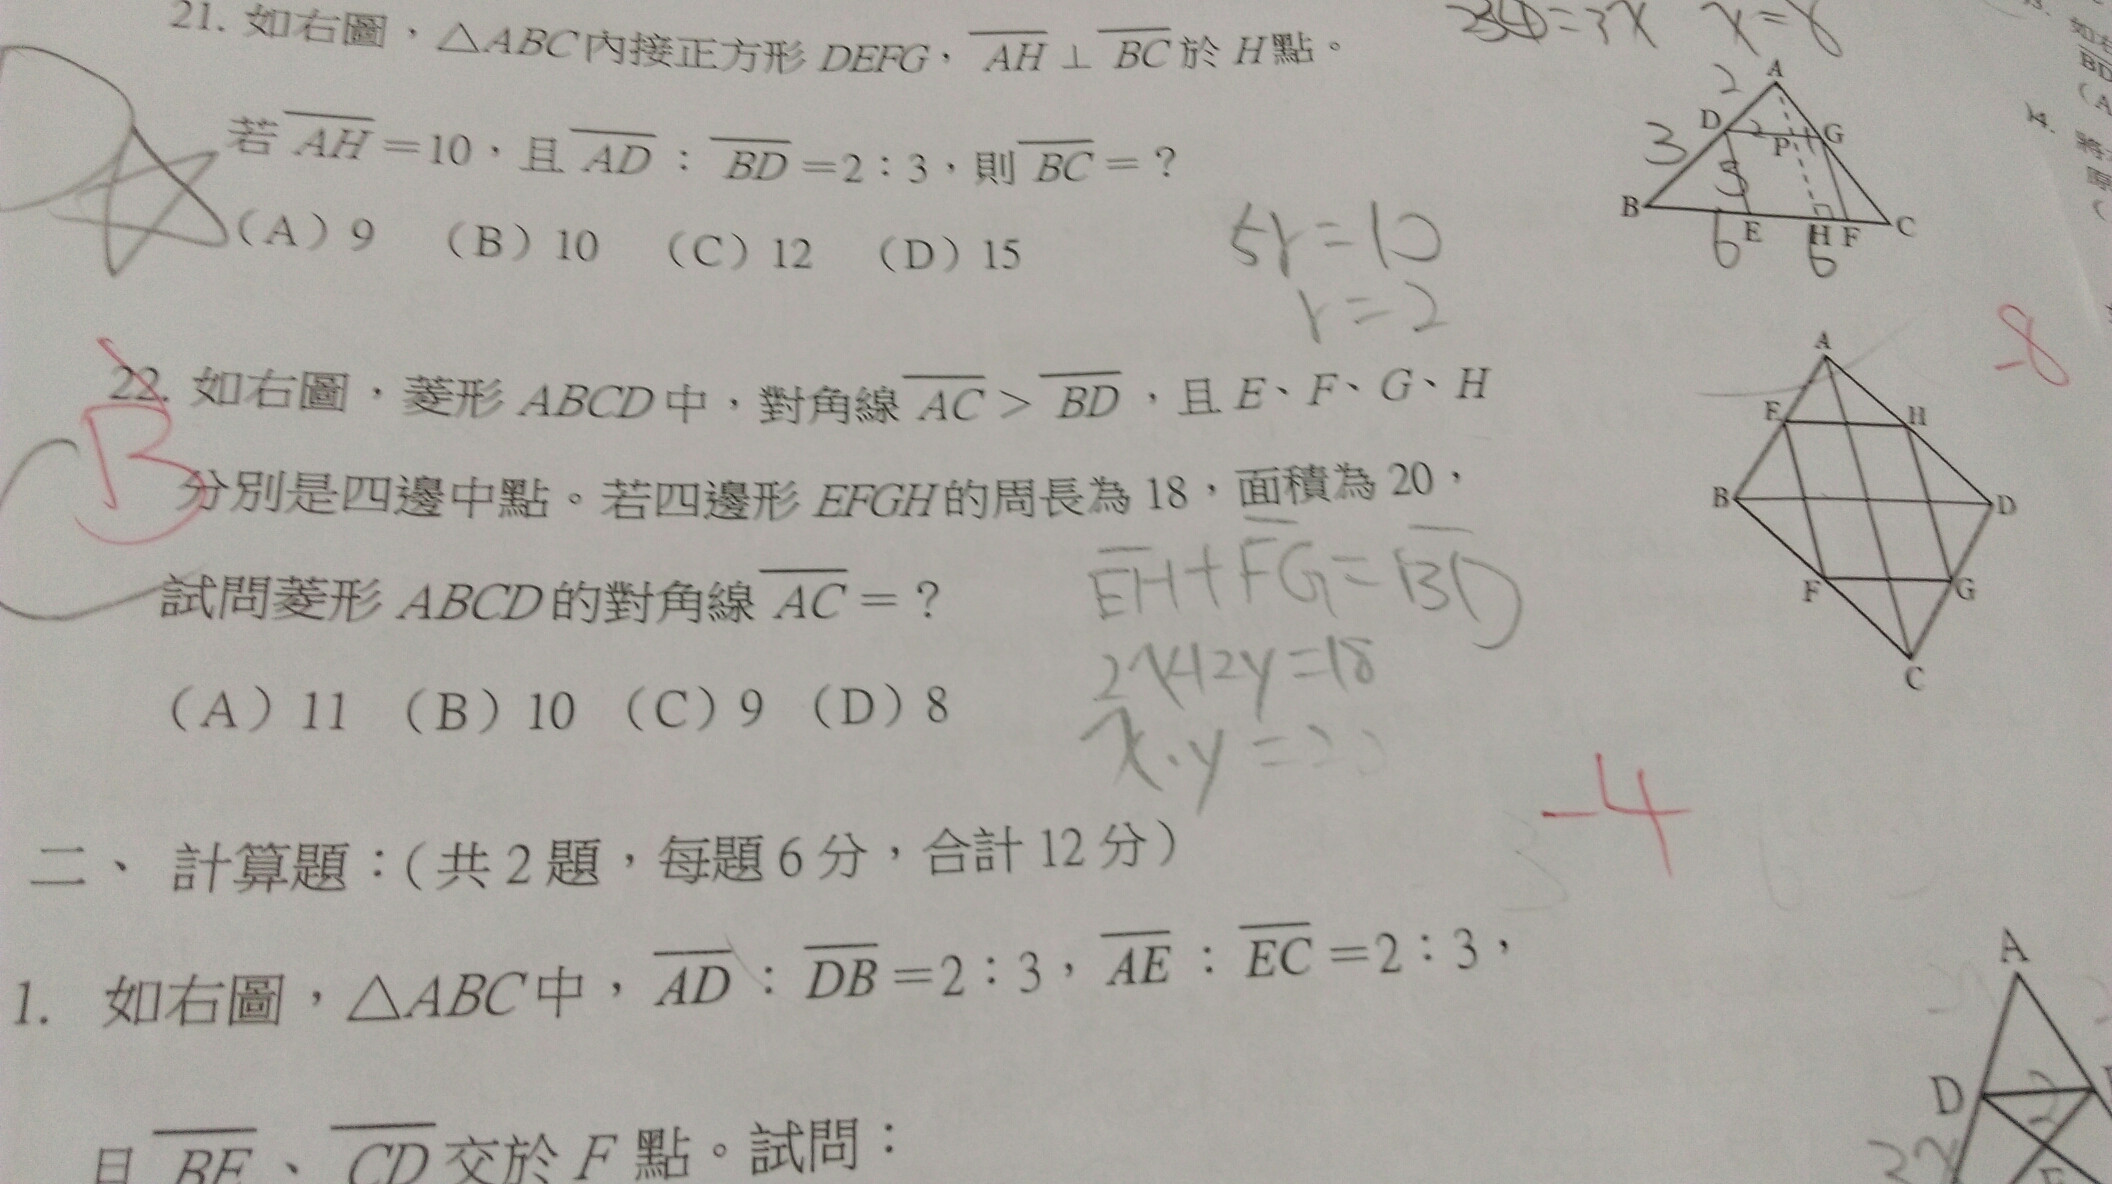 21. 如右圖，△ABC內接正方形 DEFG，AH ⊥ BC 於 H 點。
若 AH＝10，且 AD：BD＝2：3，則 BC＝？
（A）9 （B）10 （C）12 （D）15
5r=10
r=2
x=8
2
A
D
2
P
G
3
5
B
E
H
F
C
6
6
22. 如右圖，菱形 ABCD 中，對角線 AC ＞ BD，且 E、F、G、H
分別是四邊中點。若四邊形 EFGH 的周長為 18，面積為 20，
試問菱形 ABCD 的對角線 AC＝？
（A）11 （B）10 （C）9 （D）8
B
EH+FG=BD
2x+2y=18
x·y=20
-8
A
E
H
B
D
F
G
C
-4
二、 計算題：（共 2 題，每題 6 分，合計 12 分）
1. 如右圖，△ABC 中，AD：DB＝2：3，AE：EC＝2：3，
且 BE、CD 交於 F 點。試問：
A
D
2
F
14.